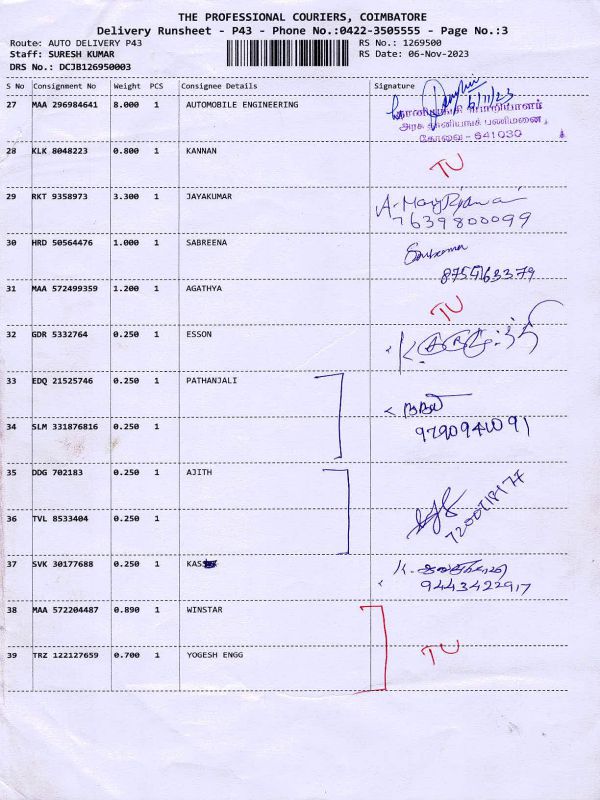 THE PROFESSIONAL COURIERS, COIMBATORE
Delivery Runsheet - P43 - Phone No.:0422-3505555 - Page No.:3
Route: AUTO DELIVERY P43 RS No.: 1269500
Staff: SURESH KUMAR RS Date: 06-Nov-2023
DRS No.: DCJB126950003
S No Consignment No Weight PCS Consignee Details Signature
27 MAA 296984641 8.000 1 AUTOMOBILE ENGINEERING 6/11/23
அரசு தானியங்கி பணிமனை,
கோவை - 641030
28 KLK 8048223 0.800 1 KANNAN TU
29 RKT 9358973 3.300 1 JAYAKUMAR
7639800099
30 HRD 50564476 1.000 1 SABREENA
31 MAA 572499359 1.200 1 AGATHYA TU
32 GDR 5332764 0.250 1 ESSON
33 EDQ 21525746 0.250 1 PATHANJALI
34 SLM 331876816 0.250 1
35 DDG 702183 0.250 1 AJITH
36 TVL 8533404 0.250 1
37 SVK 30177688 0.250 1 KAS
9443422917
38 MAA 572204487 0.890 1 WINSTAR
39 TRZ 122127659 0.700 1 YOGESH ENGG TU